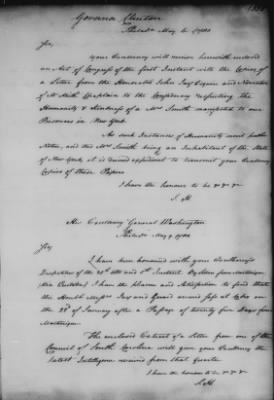 Governor Clinton
Philada May 6 1780
Sir,
your Excellency will receive herewith enclosed
an Act of Congress of the first Instant with the Copies of
a Letter from the Honorable John Jay Esquire and Narrative
of Mr Chaplain to the Confederacy respecting the
Humanity & kindness of a Mrs Smith manifested to our
Prisoners in New York.
As such Instances of Humanity merit public
Notice, and this Mrs Smith being an Inhabitant of the State
of New York, it is deemed expedient to transmit your Excellency
Copies of these Papers
I have the honour to be &c &c &c
S. H.
His Excellency General Washington
Philada May 1780
Sir,
I have been honoured with your Excellency's
Dispatches of the and Instant. By Letters from Martinique
I have the pleasure and Satisfaction to find that
the Honble Messrs Jay and Gerard arrived safe at Cadiz on
the of January after a Passage of twenty five Days from
Martinique.
The enclosed Extract of a Letter from one of the
Council of South Carolina will give your Excellency the
latest Intelligence received from that Quarter
I have the honour to be &c &c
S. H.